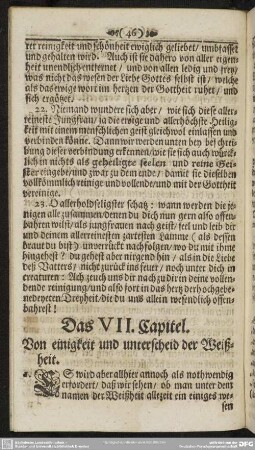 (46)
rer reinigkeit und schönheit ewiglich geliebet/ umbfasset
und gehalten wird. Auch ist sie dahero von aller eigen-
heit unendlich entfernet/ und von allen ledig und frey/
was nicht das wesen der Liebe Gottes selbst ist/ welche
als das ewige wort im hertzen der Gottheit ruhet/ und
sich ergötzet.
22. Niemand wundere sich aber/ wie sich diese aller-
reineste Jungfrau/ ja die ewige und allerhöchste Heilig-
keit mit einem menschlichen geist gleichwol einlassen und
verbinden könne. Dann wir werden unten bey beschrei-
bung dieser verbindung erkennen/ wie sie sich auch würck-
lich in nichts als geheiligte seelen und reine Gei-
ster eingebe/ und zwar zu dem ende/ damit sie dieselben
vollkömmlich reinige und vollende/ und mit der Gottheit
vereinige.
23. O allerholdseligster schatz: wann werden die je-
nigen alle zusammen/ denen du dich nun gern also offen-
bahren wilst/ als jungfrauen nach geist/ seel und leib dir
und deinem allerreinesten zartesten Lamme (als dessen
braut du bist) unverrückt nachfolgen/ wo du mit ihme
hingehest? du gehest aber nirgend hin/ als in die Liebe
deß Vatters/ nicht zurück ins feuer/ noch unter dich in
creaturen: Ach zeuch uns dir nach zu dir in deine vollen-
dende reinigung/ und also fort in das hertz der hochgebe-
nedeyeten Dreyheit/ die du uns allein wesendlich offen-
bahrest!
Das VII. Capitel.
Von einigkeit und unterscheid der Weiß-
heit.
1. ES wird aber allhier annoch als nothwendig
erfordert/ daß wir sehen/ ob man unter dem
namen der Weißheit allezeit ein einiges we-
sen